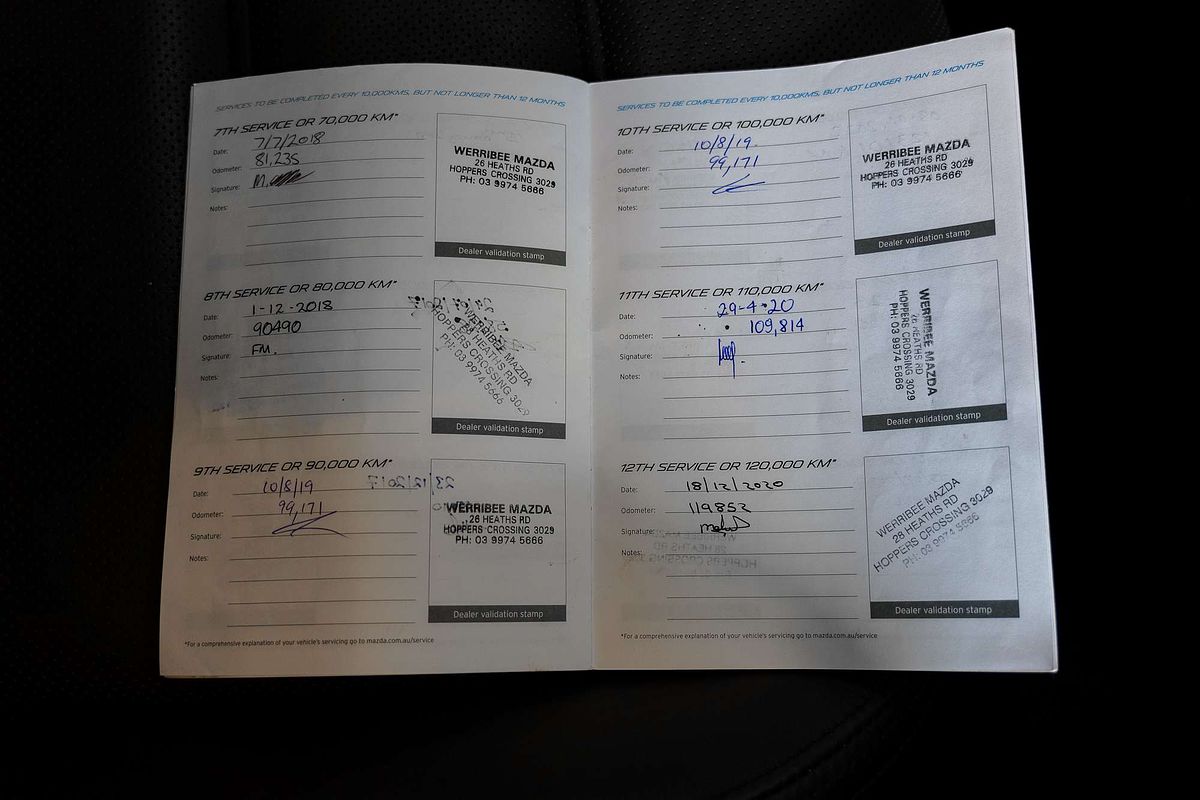 SERVICES TO BE COMPLETED EVERY 10,000KMS, BUT NOT LONGER THAN 12 MONTHS
7TH SERVICE OR 70,000 KM*
Date: 7/7/2018
Odometer: 81,235
Signature: M.
Notes:
WERRIBEE MAZDA
26 HEATHS RD
HOPPERS CROSSING 3029
PH: 03 9974 5666
Dealer validation stamp
8TH SERVICE OR 80,000 KM*
Date: 1-12-2018
Odometer: 90490
Signature: FM.
Notes:
WERRIBEE MAZDA
26 HEATHS RD
HOPPERS CROSSING 3029
PH: 03 9974 5666
Dealer validation stamp
9TH SERVICE OR 90,000 KM*
Date: 10/8/19 23/12/2017
Odometer: 99,171
Signature:
Notes:
WERRIBEE MAZDA
26 HEATHS RD
HOPPERS CROSSING 3029
PH: 03 9974 5666
Dealer validation stamp
*For a comprehensive explanation of your vehicle's servicing go to mazda.com.au/service
SERVICES TO BE COMPLETED EVERY 10,000KMS, BUT NOT LONGER THAN 12 MONTHS
10TH SERVICE OR 100,000 KM*
Date: 10/8/19.
Odometer: 99,171
Signature:
Notes:
WERRIBEE MAZDA
26 HEATHS RD
HOPPERS CROSSING 3029
PH: 03 9974 5666
Dealer validation stamp
11TH SERVICE OR 110,000 KM*
Date: 29-4-20
Odometer: 109,814
Signature:
Notes:
WERRIBEE MAZDA
26 HEATHS RD
HOPPERS CROSSING 3029
PH: 03 9974 5666
Dealer validation stamp
12TH SERVICE OR 120,000 KM*
Date: 18/12/2020
Odometer: 119852
Signature:
Notes:
WERRIBEE MAZDA
26 HEATHS RD
HOPPERS CROSSING 3029
PH: 03 9974 5666
Dealer validation stamp
*For a comprehensive explanation of your vehicle's servicing go to mazda.com.au/service